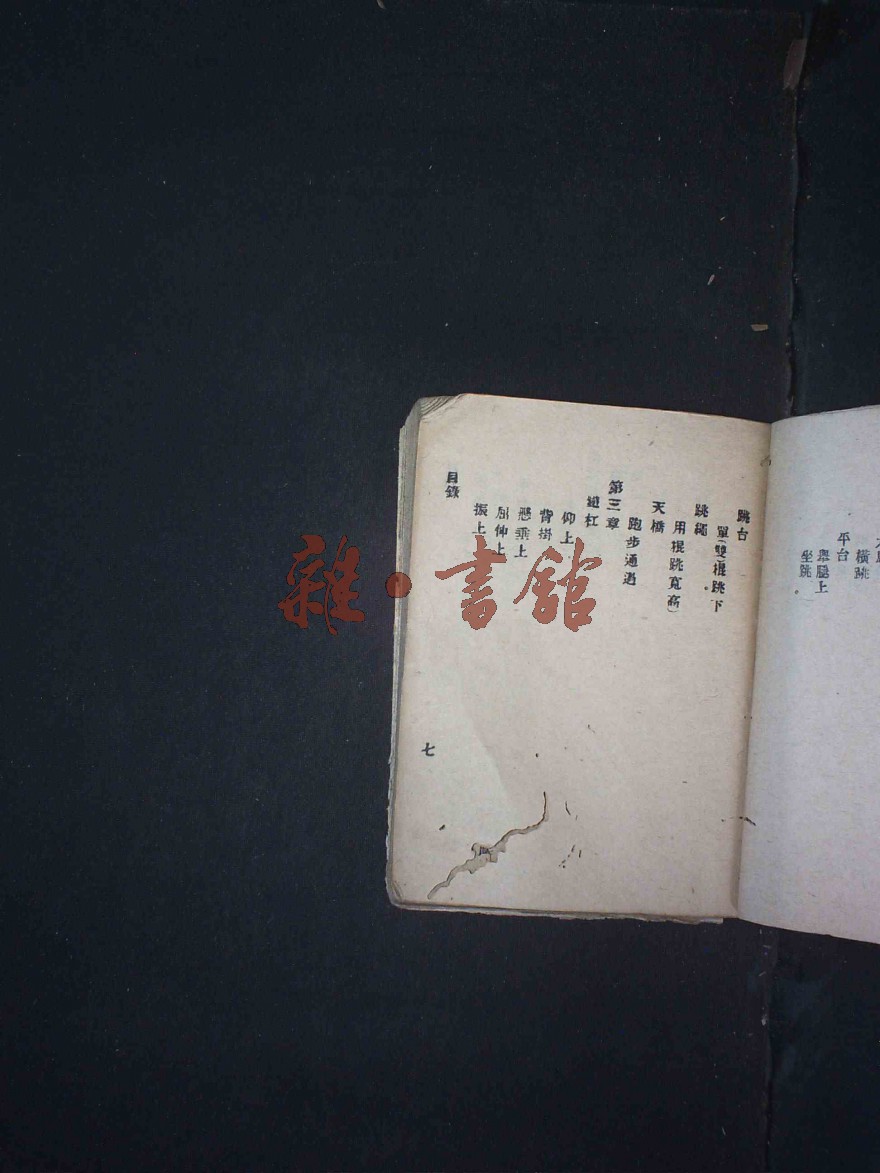 橫跳
平台
舉腿上
坐跳
跳台
單(雙棍跳下
跳繩
用棍跳寬高)
天橋
跑步通過
第三章
雙杠
仰上
背掛
懸垂上
屈伸上
振上
目錄
七
雜·書館